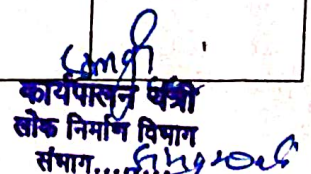 कार्यपालन यंत्री
लोक निर्माण विभाग
संभाग......